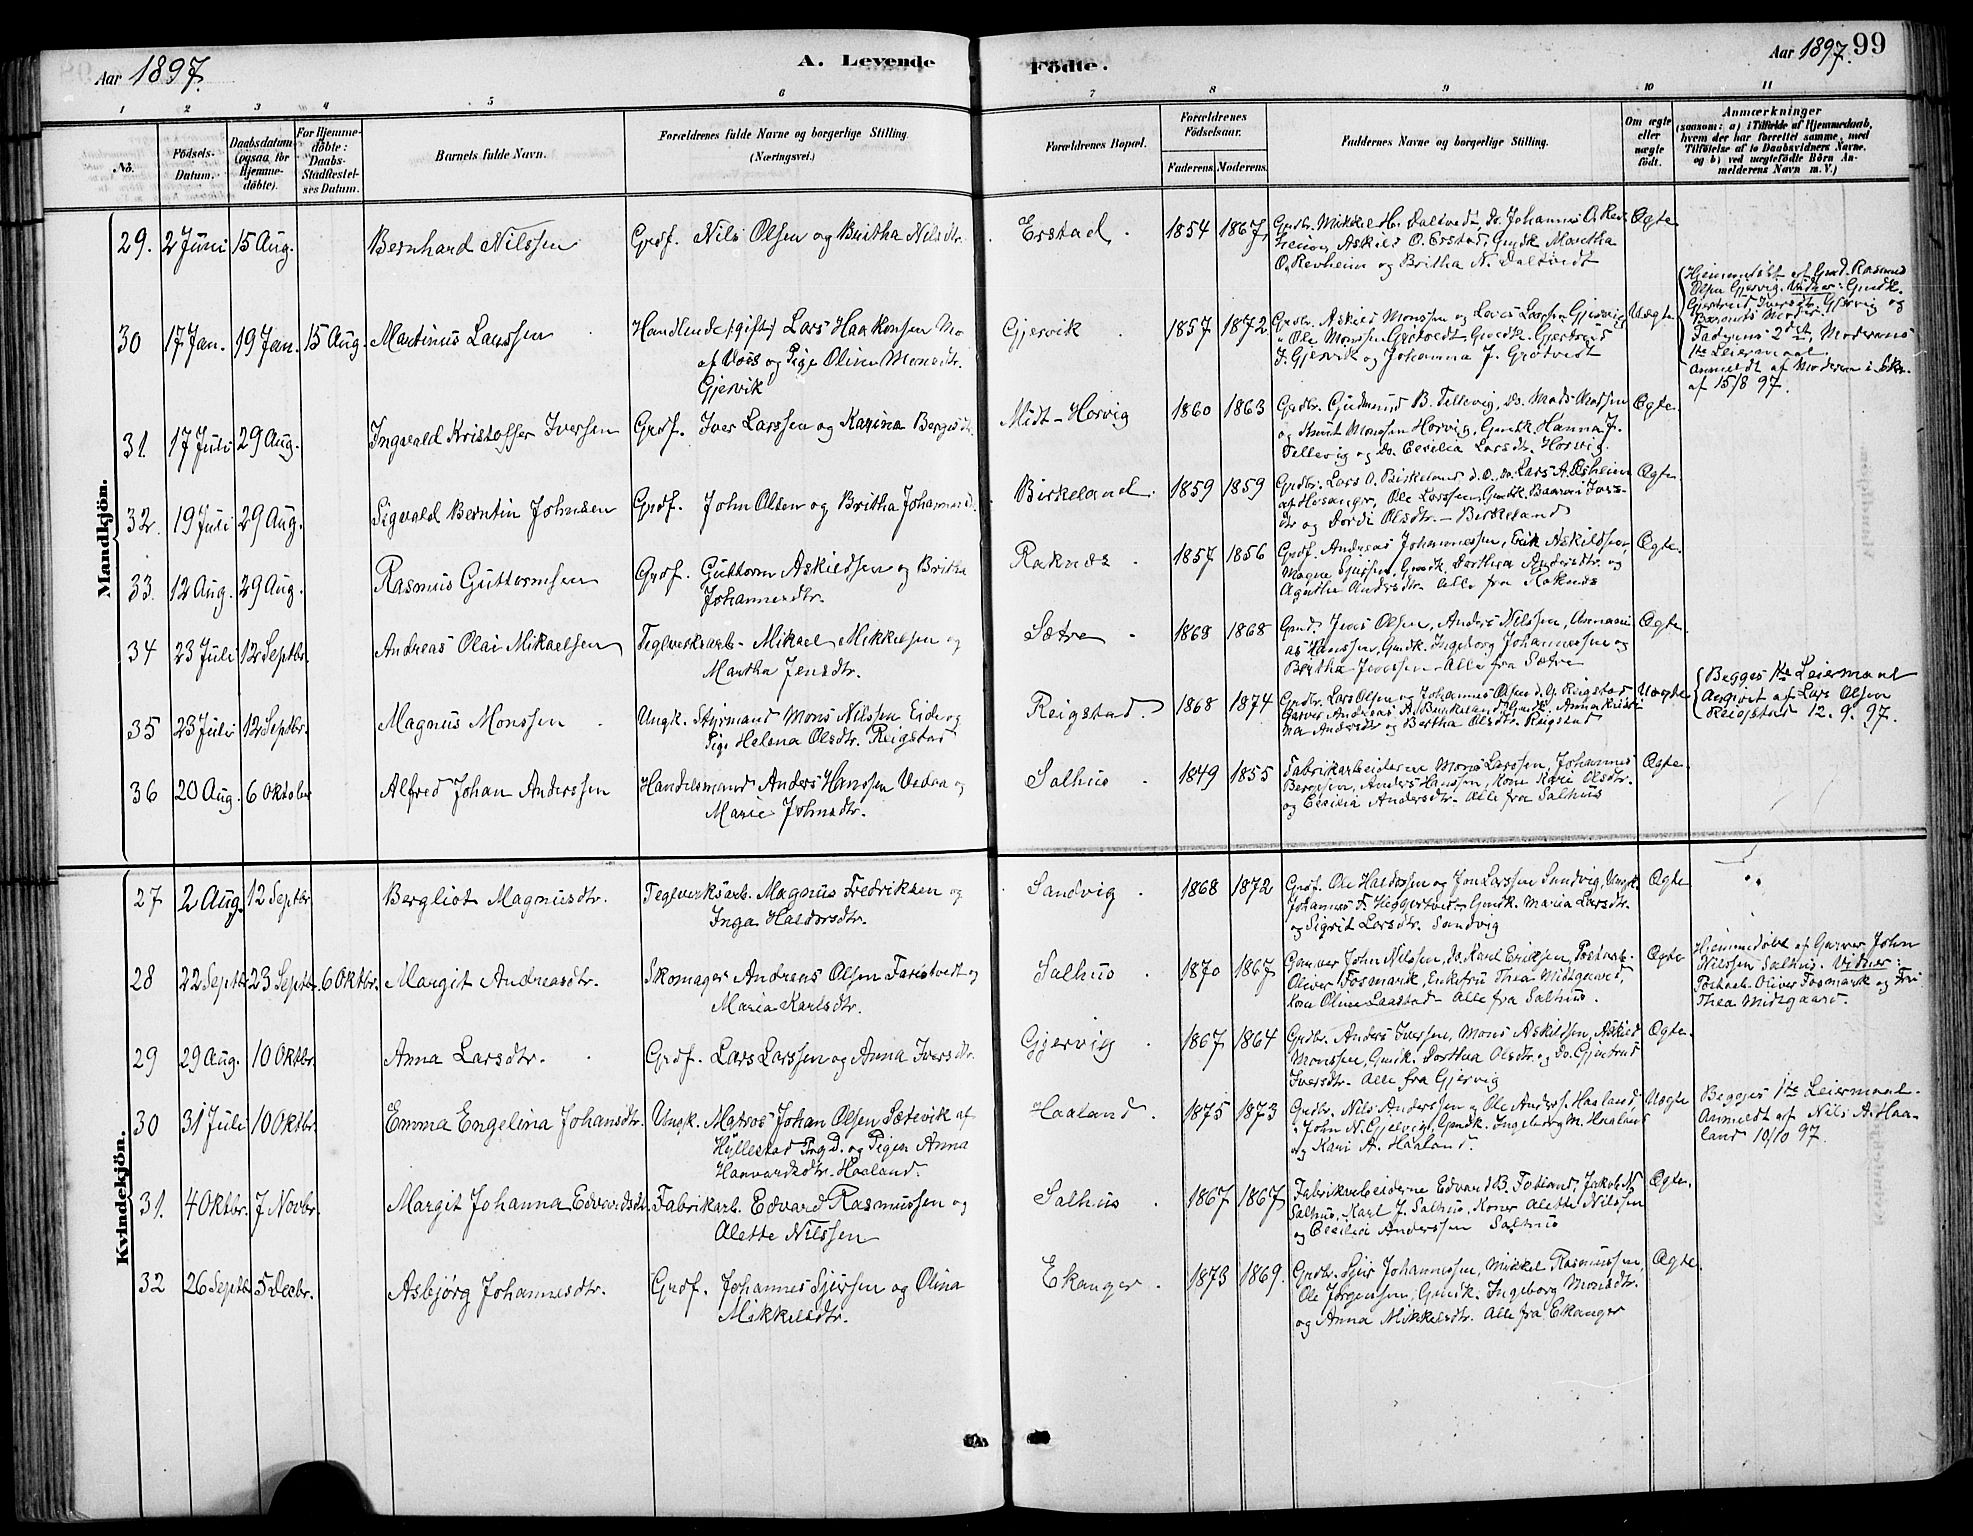 Aar 1897.
A. Levende
Födte.
Aar 1897. 99
1 2 3 4 5 6 7 8 9 10 11
No.
Födsels-
Datum.
Daabsdatum
(ogsaa for
Hjemme-
døbte).
For Hjemme-
døbte:
Daabs-
Stadfæstel-
ses Datum.
Barnets fulde Navn.
Forældrenes fulde Navne og borgerlige Stilling.
(Næringsvei.)
Forældrenes Bopæl.
Forældrenes
Födselsaar.
Faderens. Moderens.
Faddernes Navne og borgerlige Stilling.
Om ægte
eller
uægte
født.
Anmærkninger
(saasom: a) i Tilfælde af Hjemmedaab,
hvem der har forrettet samme, med
Tilföielse af to Daabsvidners Navne,
og b) ved uægtefödte Börn An-
melderens Navn m. V.)
Mandkjön.
29. 2 Juni 15 Aug. Bernhard Nilssen
Grdf. Nils Olsen og Britha Nilsdtr.
Erstad 1854 1867
Grdbr. Mikkel H. Daltvedt, Do. Johannes O. Rev-
heim, Askild O. Erstad, Gmdk. Martha
O. Revheim og Britha N. Daltvedt
Ægte
30 17 Jan. 19 Jan. 15 Aug. Martinus Larssen
Handlende (gift) Lars Haakonsen Mo
af Voss og Pige Oline Monsdtr.
Gjervik
Gjervik 1857 1872
Grdbr. Askild Monssen og Lars Larssen Gjervig,
" Ole Monssen Grotvedt, Gmdk. Gjertrud
I. Gjervik og Johanna J. Grotvedt
Uægte
Hjemmedøbt af Gmd. Rasmus
Olsen Gjervig. Vidner: Gmdk.
Gjertrud Iversdtr. Gjervig og
Barnets Moder.
Faderens 2det, Moderens
1te Leiermaal
Anmeldt af Moderen i Skr.
af 15/8 97.
31. 17 Juli 29 Aug. Ingvald Kristoffer Iversen
Grdf. Iver Larssen og Karina Bergesdtr.
Midt-Horvig 1860 1863
Grdbr. Gudmund B. Tellevig, Do. Mads Madssen
og Knut Monssen Horvig, Gmdk. Hanna J.
Tellevig og Do. Cecilia Larsdtr. Horvig.
Ægte
32. 19 Juli 29 Aug. Sigvald Berntin Johnsen
Grdf. John Olsen og Britha Johannesdtr.
Birkeland 1859 1859
Grdbr. Lars O. Birkeland d. O., Do. Lars A. Øsheim
af Hosanger, Ole Larssen, Gmdk. Baaroi Ivers-
dtr og Dordi Olsdtr. - Birkeland
Ægte
33. 12 Aug. 29 Aug. Rasmus Guttormsen
Grdf. Guttorm Askildsen og Britha
Johannesdtr.
Raknæs 1857 1856
Grdf. Andreas Johannessen, Erik Askildsen,
Magne Sjursen, Gmdk. Dorthea Andersdtr. og
Agathe Andersdtr. Alle fra Raknæs
Ægte.
34 23 Juli 12 Septbr. Andreas Olai Mikaelsen
Teglverksarb. Mikael Mikkelsen og
Martha Jensdtr.
Sætre 1868 1868
Gmd. Jens Olsen, Anders Nilssen, Annani-
as Hanssen, Gmdk. Ingeborg Johannessen og
Bertha Jenssen - Alle fra Sætre
Ægte.
35 23 Juli 12 Septbr. Magnus Monssen
Ungk. Styrmand Mons Nilssen Eide og
Pige Helena Olsdtr. Reigstad
Reigstad. 1868 1874
Grdbr. Lars Olsen og Johannes Olsen d. y. Reigstad,
Garver Andreas A. Birkeland, Gmdk. Anna Kristi-
na Andersdtr og Bertha Olsdtr. Reigstad
Uægte
Begges 1te Leiermaal
Angivet af Lars Olsen
Reigstad 12.9.97.
36 20 Aug. 6 Oktober Alfred Johan Anderssen
Handelsmand Anders Hanssen Vedaa og
Marie Johnsdtr.
Salhus 1849 1855
Fabrikarbeiderne Mons Larssen, Johannes
Bergesen, Anders Hanssen, Kone Kari Olsdtr.
og Cecilia Andersdtr. Alle fra Salhus
Ægte.
Kvindekjön.
27 2 Aug. 12 Septbr. Bergliot Magnusdtr.
Teglverksarb. Magnus Fredriksen og
Inga Haldorsdtr.
Sandvig 1868 1872
Grdf. Ole Haldorssen og Jon Larssen Sandvig, Ungk.
Johannes F. Heggertveit - Gmdk. Maria Larsdtr.
og Sigrit Larsdtr. Sandvig
Ægte
28 22 Septbr 23 Septbr. 6 Oktbr. Margit Andreasdtr.
Skomager Andreas Olsen Faristvedt og
Maria Karlsdtr.
Salhus 1870 1867
Garver John Nilssen, Do. Karl Eriksen, Postaab.
Oliver Fosmark, Enkefru Thea Midtgaard,
Kone Oline Laastad - Alle fra Salhus.
Ægte
Hjemmedøbt af Garver John
Nilssen Salhus. Vidner:
Postaab. Oliver Fosmark og Fru
Thea Midtgaard.
29 29 Aug. 10 Oktbr. Anna Larsdtr.
Grdf. Lars Larssen og Anna Iversdtr.
Gjervig 1867 1864
Grdbr. Anders Iverssen, Mons Askildsen, Askild
Monssen, Gmdk. Dorthea Olsdtr. og Do. Gjertrud
Iversdtr. Alle fra Gjervig
Ægte.
30 31 Juli 10 Oktbr. Emma Engelina Johansdtr.
Ungk. Matros Johan Olsen Sætevik af
Hyllestad Prgd. og Pigen Anna
Haavardsdtr. Haaland.
Haaland. 1875 1873
Grdbr. Nils Anderssen og Ole Anderss. Haaland,
" John N. Gjelvig, Gmdk. Ingeborg M. Haaland
og Kari A. Haaland.
Uægte
Begges 1te Leiermaal.
Anmeldt af Nils A. Haa-
land 10/10 97.
31. 4 Oktbr. 7 Novbr. Margit Johanna Edvardsdtr.
Fabrikarb. Edvard Rasmussen og
Alette Nilssen
Salhus 1867 1867
Fabrikarbeiderne Edvard B. Fotland, Jakob N.
Salhus, Karl J. Salhus, Koner Alette Nilssen
og Cecilie Anderssen Salhus
Ægte.
32 26 Septbr 5 Decbr. Asbjørg Johannesdtr.
Grdf. Johannes Sjursen og Olina
Mikkelsdtr.
Ekanger 1873 1869.
Grdbr. Sjur Johannessen, Mikkel Rasmussen,
Ole Jørgensen, Gmdk. Ingeborg Monsdtr.
og Anna Mikkelsdtr. Alle fra Ekanger
Ægte.